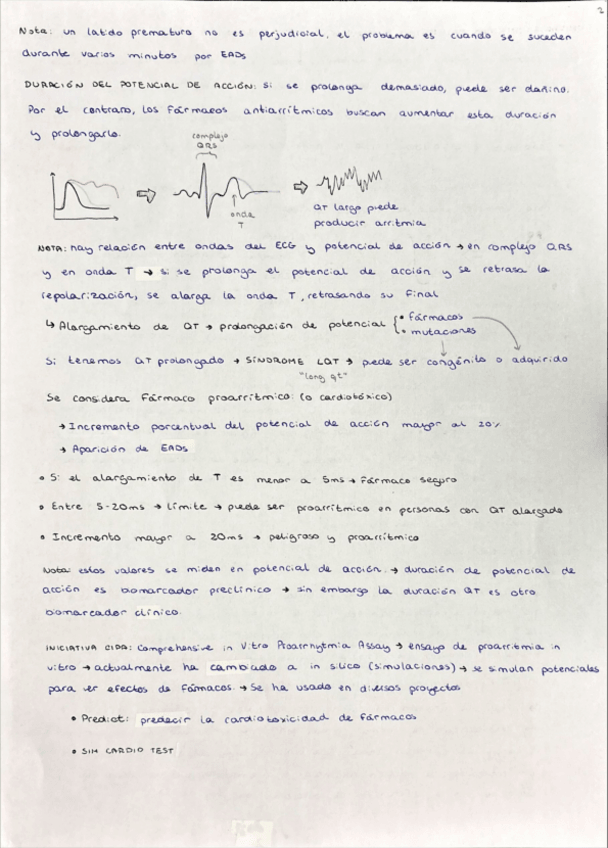 2
Nota: un latido prematuro no es perjudicial, el problema es cuando se suceden
durante varios minutos por EADs
DURACIÓN DEL POTENCIAL DE ACCIÓN: si se prolonga demasiado, puede ser dañino.
Por el contraro, los fármacos antiarrítmicos buscan aumentar esta duración
y prolongarlo.
complejo
QRS
onda
T
QT largo puede
producir arritmia
NOTA: hay relación entre ondas del ECG y potencial de acción → en complejo QRS
y en onda T → si se prolonga el potencial de acción y se retrasa la
repolarización, se alarga la onda T, retrasando su final
↳ Alargamiento de QT → prolongación de potencial { • fármacos
• mutaciones
Si tenemos QT prolongado → SÍNDROME LQT → puede ser congénito o adquirido
"long qt"
Se considera fármaco proarrítmico: (o cardiotóxico)
→ Incremento porcentual del potencial de acción mayor al 20%
→ Aparición de EADs
• Si el alargamiento de T es menor a 5ms → fármaco seguro
• Entre 5-20ms → límite → puede ser proarrítmico en personas con QT alargado
• Incremento mayor a 20ms → peligroso y proarrítmico
Nota: estos valores se miden en potencial de acción. → duración de potencial de
acción es biomarcador preclínico → sin embargo la duración QT es otro
biomarcador clínico.
INICIATIVA CIPA: Comprehensive in Vitro Proarrhytmia Assay → ensayo de proarritmia in
vitro → actualmente ha cambiado a in silico (simulaciones) → se simulan potenciales
para ver efectos de fármacos. → Se ha usado en diversos proyectos
• Predict: predecir la cardiotoxicidad de fármacos
• SIM CARDIO TEST